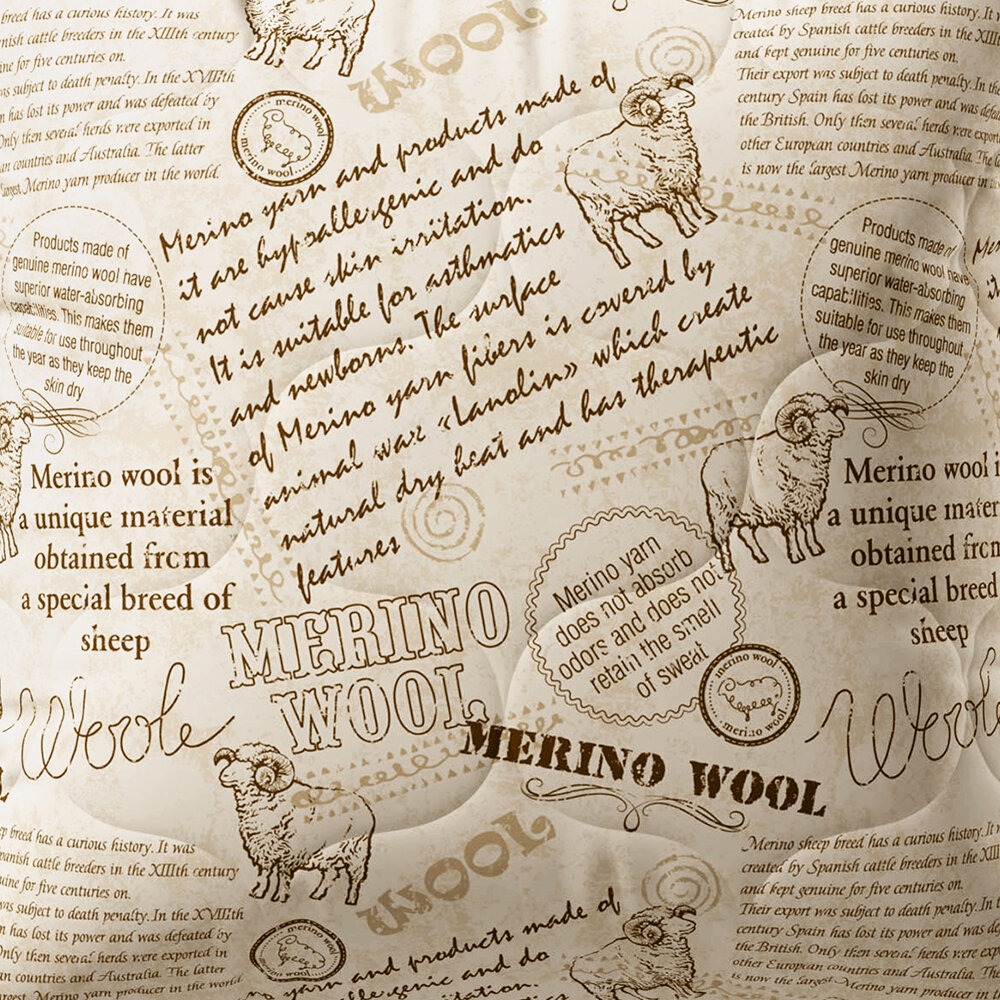 breed has a curious history. It was
nish cattle breeders in the XIIIth century
ine for five centuries on.
as subject to death penalty. In the XVIIth
n has lost its power and was defeated by
Only then several herds were exported in
an countries and Australia. The latter
largest Merino yarn producer in the world.
WOOL
Merino sheep breed has a curious history. It
created by Spanish cattle breeders in the XIII
and kept genuine for five centuries on.
Their export was subject to death penalty. In the
century Spain has lost its power and was defea
the British. Only then several herds were expor
other European countries and Australia. The l
is now the largest Merino yarn producer in
merino wool
merino wool
Merino yarn and products made of
it are hypoallergenic and do
not cause skin irritation.
It is suitable for asthmatics
and newborns. The surface
of Merino yarn fibers is covered by
animal wax «Lanolin» which create
natural dry heat and has therapeutic
features
Products made of
genuine merino wool have
superior water-absorbing
capabilities. This makes them
suitable for use throughout
the year as they keep the
skin dry
Products made of
genuine merino wool have
superior water-absorbing
capabilities. This makes them
suitable for use throughout
the year as they keep the
skin dry
Mer
it
Merino wool is
a unique material
obtained from
a special breed of
sheep
Merino wool i
a unique mater
obtained from
a special breed
sheep
Merino yarn
does not absorb
odors and does not
retain the smell
of sweat
MERINO
WOOL
merino wool
merino wool
Woole
Wool
MERINO WOOL
WOOL
p breed has a curious history. It was
panish cattle breeders in the XIIIth century
uine for five centuries on.
was subject to death penalty. In the XVIIth
n has lost its power and was defeated by
Only then several herds were exported in
an countries and Australia. The latter
largest Merino yarn producer in the world.
Merino sheep breed has a curious history. It
created by Spanish cattle breeders in the XIII
and kept genuine for five centuries on.
Their export was subject to death penalty. In t
century Spain has lost its power and was def
the British. Only then several herds were exp
other European countries and Australia. The
is now the largest Merino yarn producer in
merino wool
merino wool
and products made of
allergenic and do
irritation.